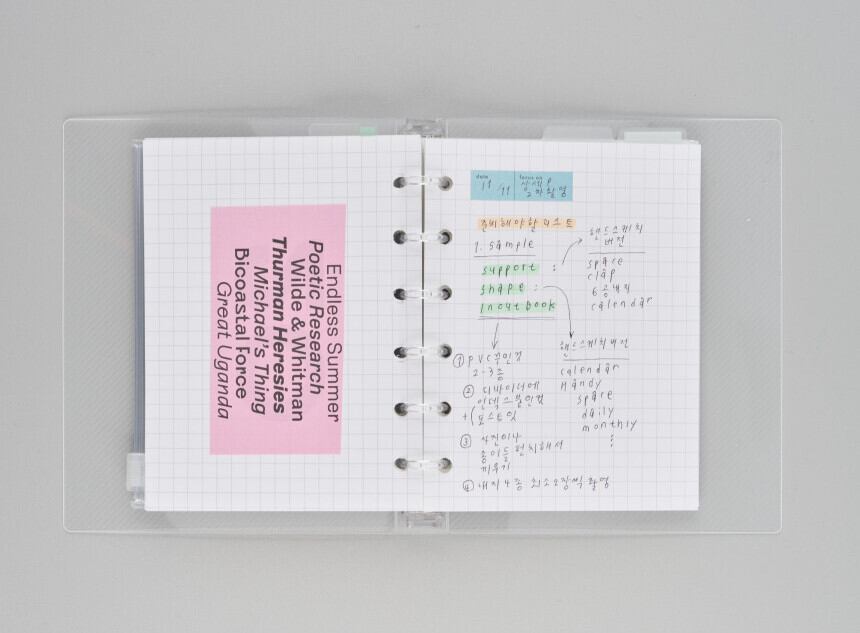 Endless Summer
Poetic Research
Wilde & Whitman
Thurman Heresies
Michael's Thing
Bicoastal Force
Great Uganda
date
11/11
focus on
상세P
2차촬영
준비해야할 리스트
1. sample
support :
shape :
inout book
핸드스케치
버전
space
clap
6공내지
calendar
핸드스케치버전
calendar
Handy
space
daily
monthly
① PVC꾸민것
2-3종
② 디바이더에
인덱스붙인것
+ ( 포스트잇
③ 사진이나
종이들 펀치해서
끼우기
④ 내지4종 최소2장씩 촬영